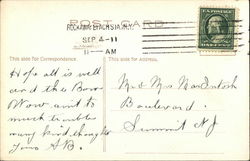 POST CARD
ROCKAWAY BEACH STA. N.Y.
SEP 4-11
11-AM
This side for Correspondence.
This side for Address.
Hope all is well
and the Boro
Wow aint to
much trouble
many kind thoughts
Yours S.B.
Mr & Mrs MacIntosh
Boulevard.
Summit NJ